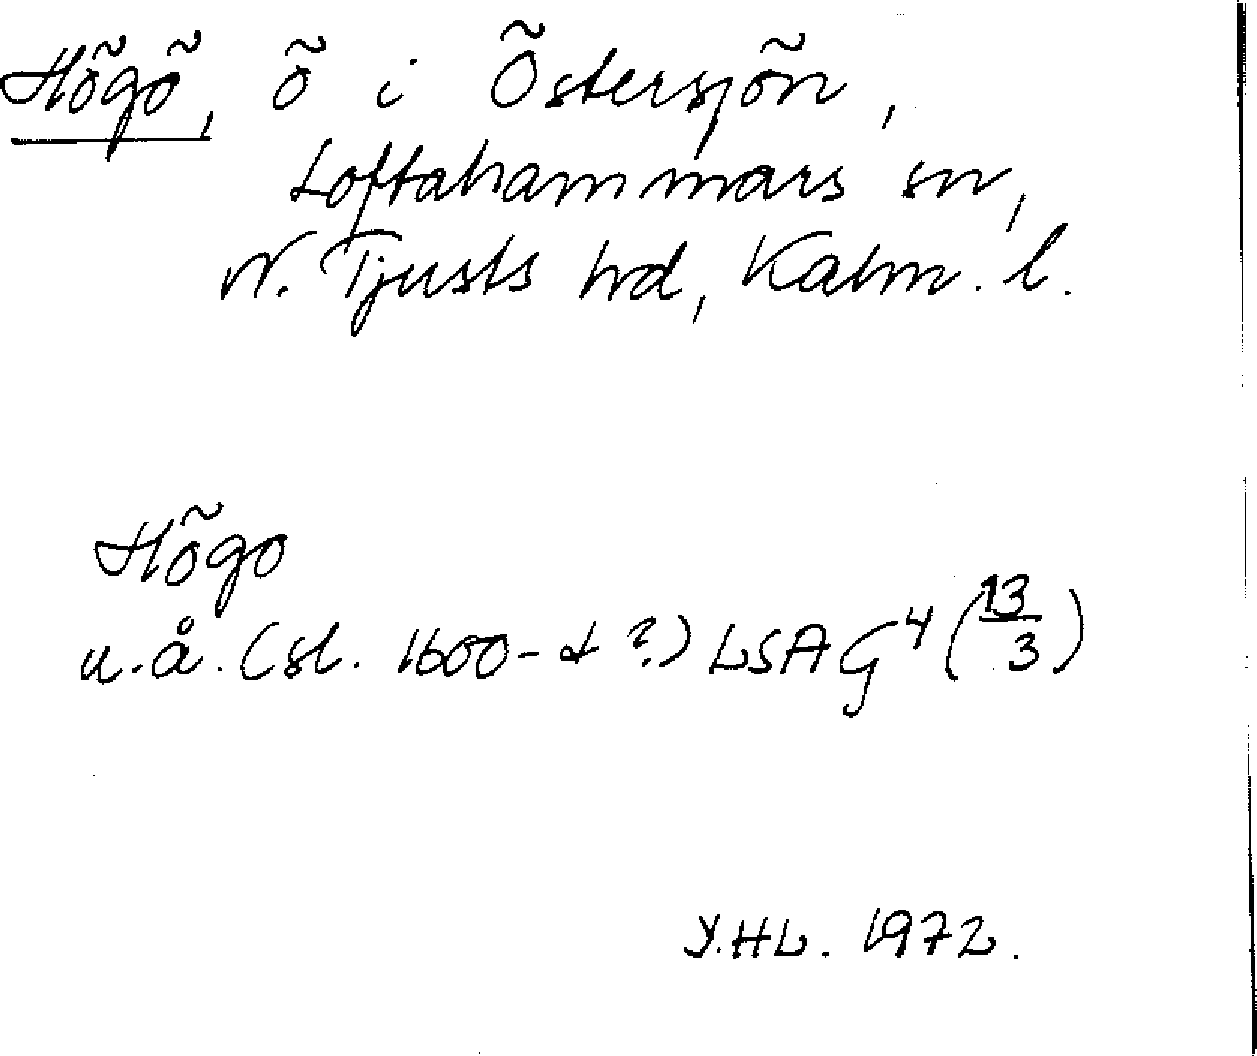 Högö, ö i Östersjön,
Loftahammars sn,
N. Tjusts hd, Kalm. l.
Högo
u.å. (sl. 1600-t ?) LSA G⁴ (13/3)
Y.HL. 1972.